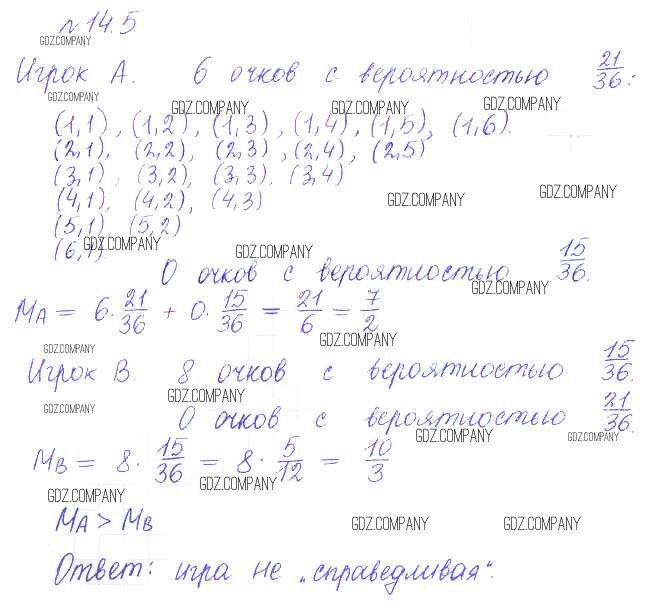 № 14.5
GDZ.COMPANY
Игрок А. 6 очков с вероятностью 21/36:
GDZ.COMPANY GDZ.COMPANY GDZ.COMPANY GDZ.COMPANY
(1,1), (1,2), (1,3), (1,4), (1,5), (1,6).
(2,1), (2,2), (2,3), (2,4), (2,5)
(3,1), (3,2), (3,3), (3,4)
(4,1), (4,2), (4,3)
GDZ.COMPANY GDZ.COMPANY
(5,1), (5,2)
(6,1)
GDZ.COMPANY GDZ.COMPANY GDZ.COMPANY
0 очков с вероятностью 15/36.
GDZ.COMPANY
MA = 6 · 21/36 + 0 · 15/36 = 21/6 = 7/2
GDZ.COMPANY GDZ.COMPANY
Игрок В. 8 очков с вероятностью 15/36.
GDZ.COMPANY GDZ.COMPANY
0 очков с вероятностью 21/36.
GDZ.COMPANY GDZ.COMPANY
MB = 8 · 15/36 = 8 · 5/12 = 10/3
GDZ.COMPANY GDZ.COMPANY
MA > MB
GDZ.COMPANY GDZ.COMPANY
Ответ: игра не „справедливая“.